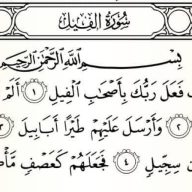 سُورَةُ الفِيلِ
بِسْمِ اللَّهِ الرَّحْمَٰنِ الرَّحِيمِ
فَعَلَ رَبُّكَ بِأَصْحَابِ الْفِيلِ ١ أَلَمْ
٢ وَأَرْسَلَ عَلَيْهِمْ طَيْرًا أَبَابِيلَ ٣
سِجِّيلٍ ٤ فَجَعَلَهُمْ كَعَصْفٍ